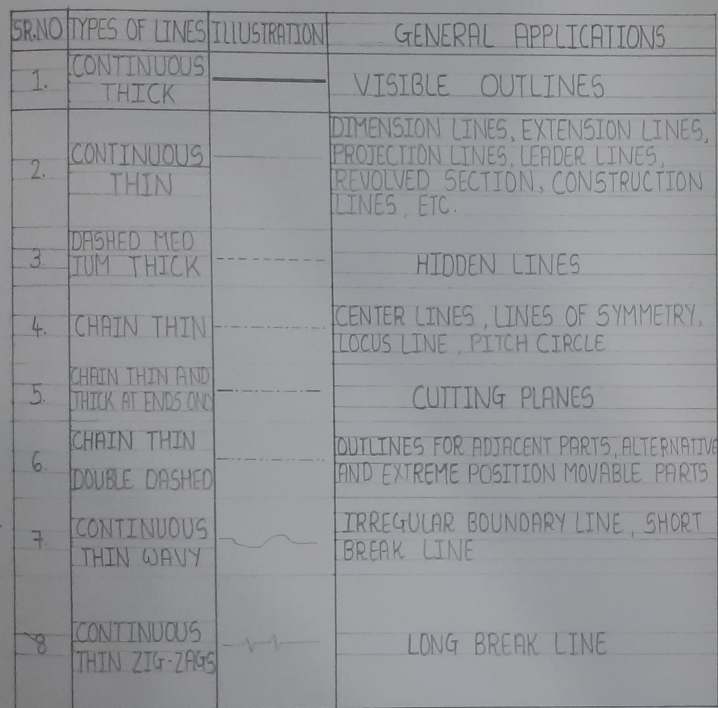 SR.NO TYPES OF LINES ILLUSTRATION GENERAL APPLICATIONS
1. CONTINUOUS THICK VISIBLE OUTLINES
2. CONTINUOUS THIN
DIMENSION LINES, EXTENSION LINES,
PROJECTION LINES, LEADER LINES,
REVOLVED SECTION, CONSTRUCTION
LINES, ETC.
3 DASHED MED
IUM THICK
HIDDEN LINES
4. CHAIN THIN
CENTER LINES, LINES OF SYMMETRY,
LOCUS LINE, PITCH CIRCLE
5. CHAIN THIN AND
THICK AT ENDS ONLY
CUTTING PLANES
6. CHAIN THIN
DOUBLE DASHED
OUTLINES FOR ADJACENT PARTS, ALTERNATIVE
AND EXTREME POSITION MOVABLE PARTS
7. CONTINUOUS
THIN WAVY
IRREGULAR BOUNDARY LINE, SHORT
BREAK LINE
8 CONTINUOUS
THIN ZIG-ZAGS
LONG BREAK LINE